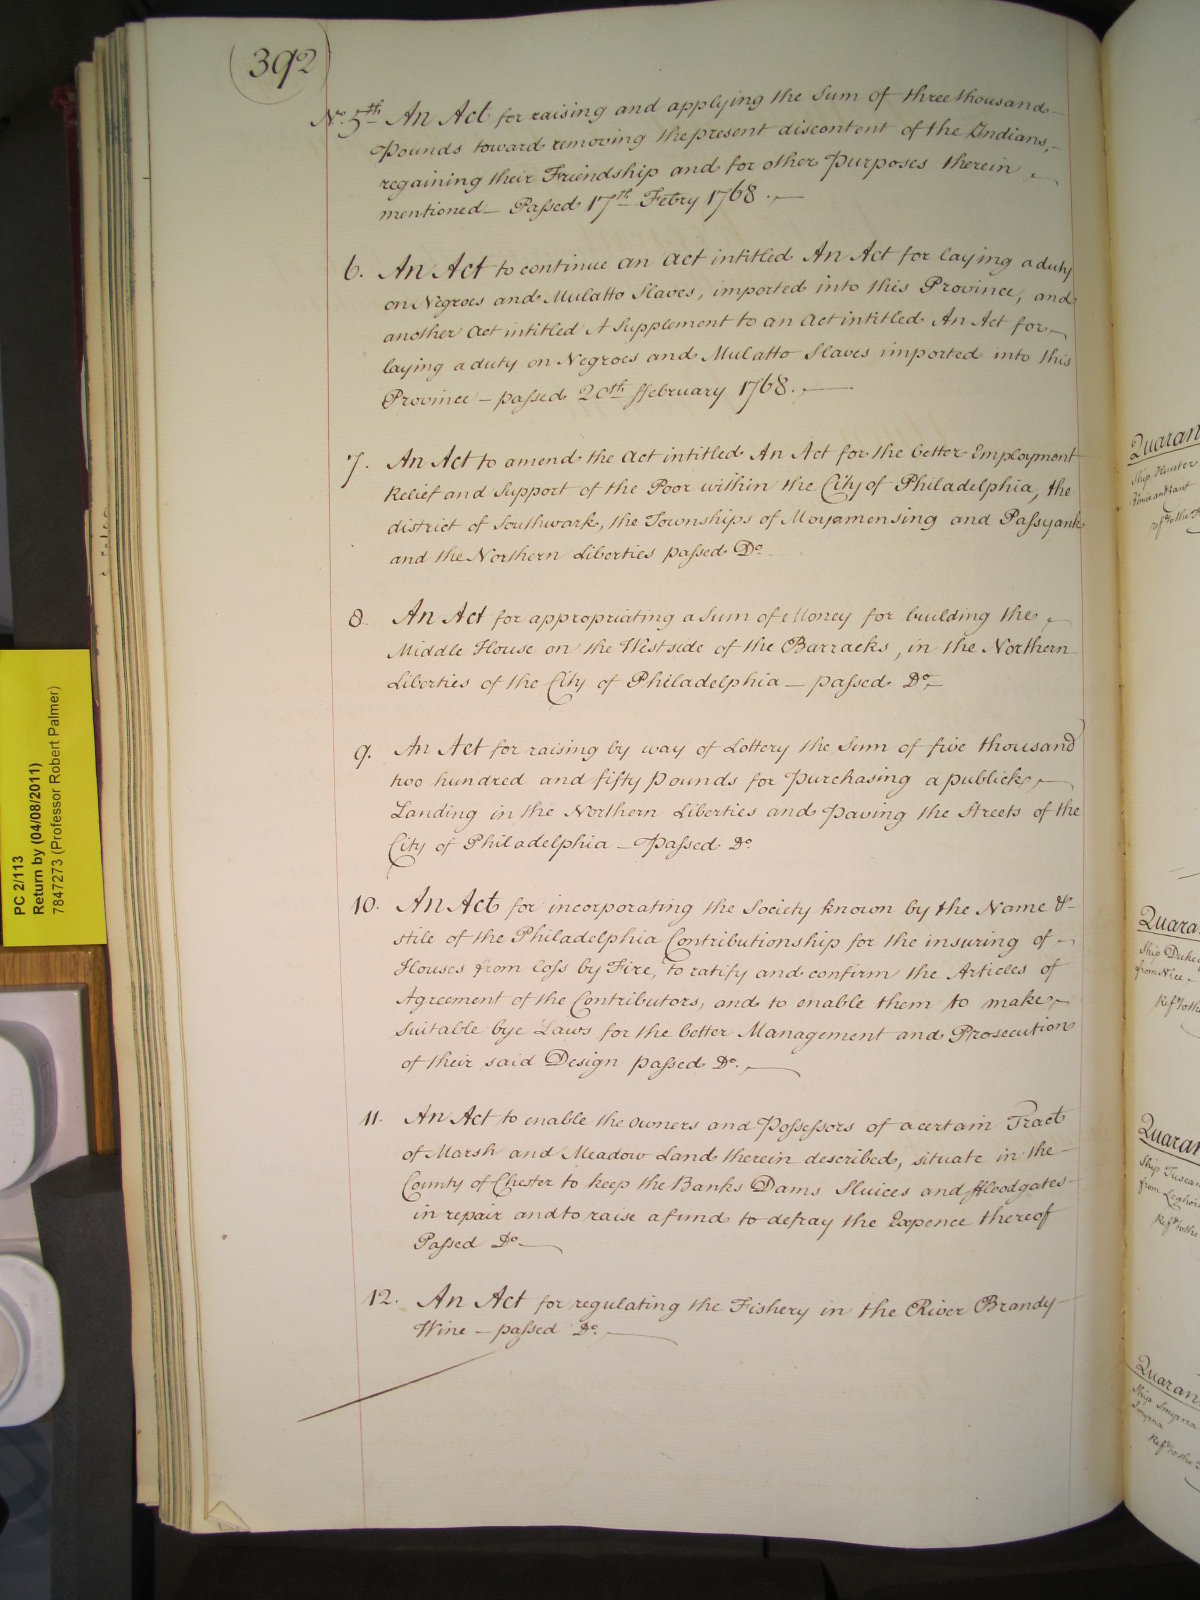 392
No. 5th. An Act for raising and applying the Sum of three thousand
Pounds toward removing the present discontent of the Indians,
regaining their Friendship and for other Purposes therein
mentioned – Passed 17th Febry 1768.
6. An Act to continue an Act intitled An Act for laying a duty
on Negroes and Mulatto Slaves, imported into this Province, and
another Act intitled A Supplement to an Act intitled An Act for
laying a duty on Negroes and Mulatto Slaves imported into this
Province – passed 20th ffebruary 1768.
7. An Act to amend the Act intitled An Act for the better Employment
Relief and Support of the Poor within the City of Philadelphia, the
district of Southwark, the Townships of Moyamensing and Passyank
and the Northern Liberties passed Do.
8. An Act for appropriating a Sum of Money for building the
Middle House on the West side of the Barracks, in the Northern
Liberties of the City of Philadelphia – passed Do.
9. An Act for raising by way of Lottery the Sum of five thousand
two hundred and fifty Pounds for Purchasing a publick
Landing in the Northern Liberties and Paving the Streets of the
City of Philadelphia – Passed Do.
10. An Act for incorporating the Society known by the Name &
stile of the Philadelphia Contributionship for the insuring of
Houses from loss by Fire, to ratify and confirm the Articles of
Agreement of the Contributors, and to enable them to make
suitable bye Laws for the better Management and Prosecution
of their said Design passed Do.
11. An Act to enable the Owners and Possessors of a certain Tract
of Marsh and Meadow Land therein described, situate in the
County of Chester to keep the Banks Dams Sluices and ffloodgates
in repair and to raise a fund to defray the Expence thereof
Passed Do.
12. An Act for regulating the Fishery in the River Brandy
Wine – passed Do.
PC 2/113
Return by (04/08/2011)
7847273 (Professor Robert Palmer)
Quaran
Ship Hunter
Quaran
Ship Duke
from Nice
Quaran
Ship Tuscan
from Leghorn
Quaran
Ship Smyrna
Smyrna